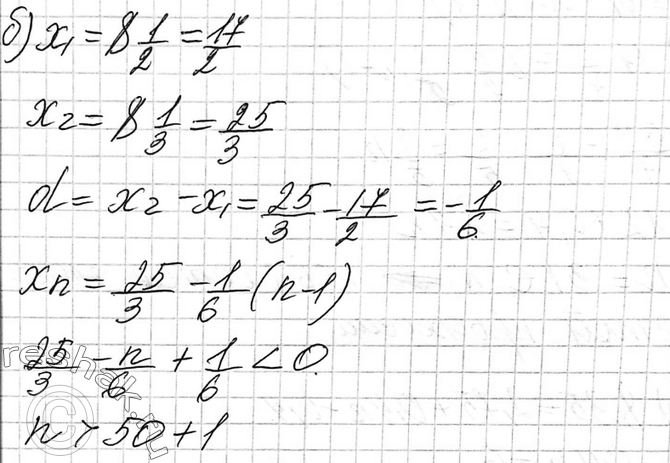 б) x₁ = 8 1/2 = 17/2
x₂ = 8 1/3 = 25/3
d = x₂ - x₁ = 25/3 - 17/2 = -1/6
xn = 25/3 - 1/6 (n-1)
25/3 - n/6 + 1/6 < 0
n > 50 + 1
reshak.ru